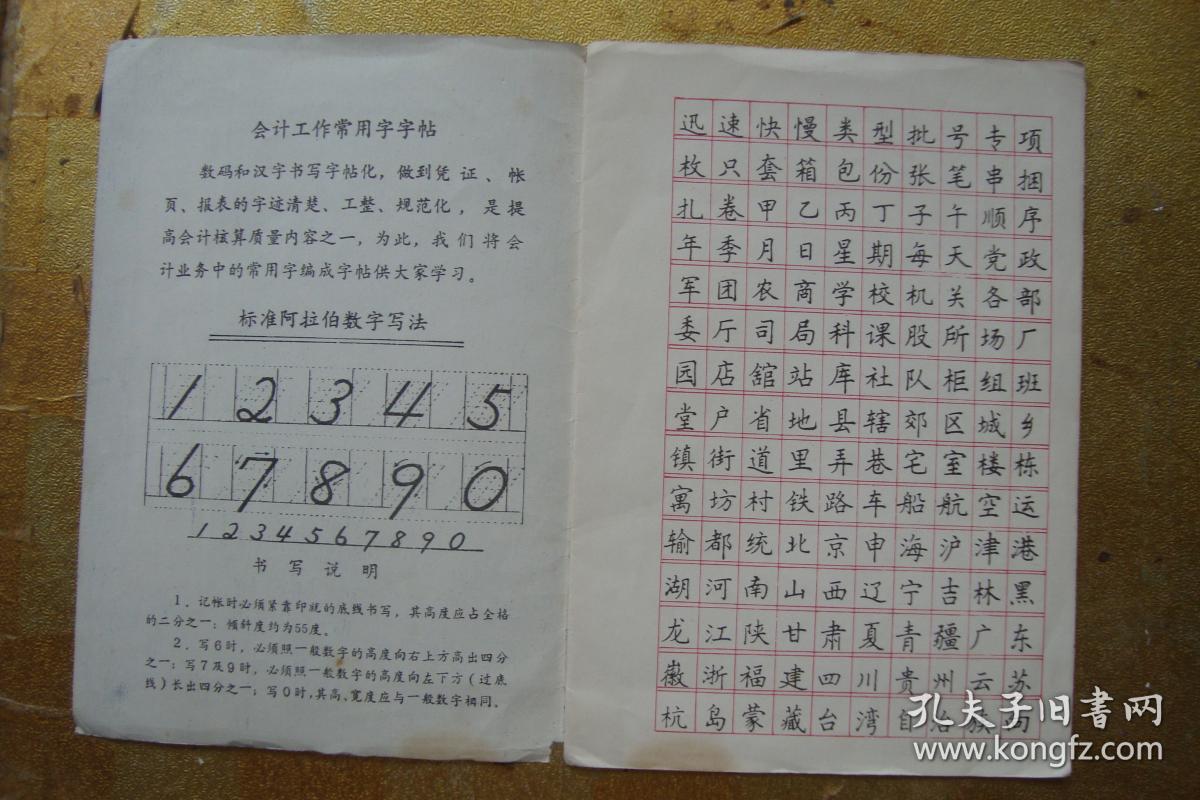 会计工作常用字字帖
数码和汉字书写字帖化，做到凭证、帐
页、报表的字迹清楚、工整、规范化，是提
高会计核算质量内容之一，为此，我们将会
计业务中的常用字编成字帖供大家学习。
标准阿拉伯数字写法
1 2 3 4 5
6 7 8 9 0
1 2 3 4 5 6 7 8 9 0
书写说明
1．记帐时必须紧靠印就的底线书写，其高度应占全格
的二分之一；倾斜度约为55度。
2．写6时，必须照一般数字的高度向右上方高出四分
之一；写7及9时，必须照一般数字的高度向左下方（过底
线）长出四分之一；写0时，其高、宽度应与一般数字相同。
迅速快慢类型批号专项
枚只套箱包份张笔串捆
扎卷甲乙丙丁子午顺序
年季月日星期每天党政
军团农商学校机关各部
委厅司局科课股所场厂
园店舘站库社队柜组班
堂户省地县辖郊区城乡
镇街道里弄巷宅室楼栋
寓坊村铁路车船航空运
输都统北京申海沪津港
湖河南山西辽宁吉林黑
龙江陕甘肃夏青疆广东
徽浙福建四川贵州云苏
杭岛蒙藏台湾自治族
孔夫子旧书网
www.kongfz.com